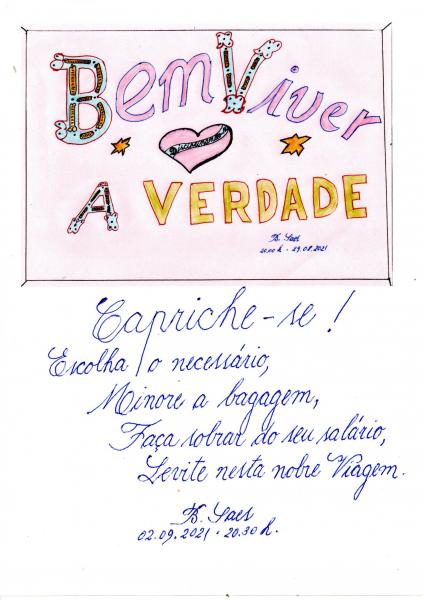 Bem Viver
A VERDADE
B. Saes
20:00 h - 29.08.2021
Capriche-se!
Escolha o necessário,
Minore a bagagem,
Faça sobrar do seu salário,
Levite nesta nobre Viagem.
B. Saes
02.09.2021 - 20.30 h.